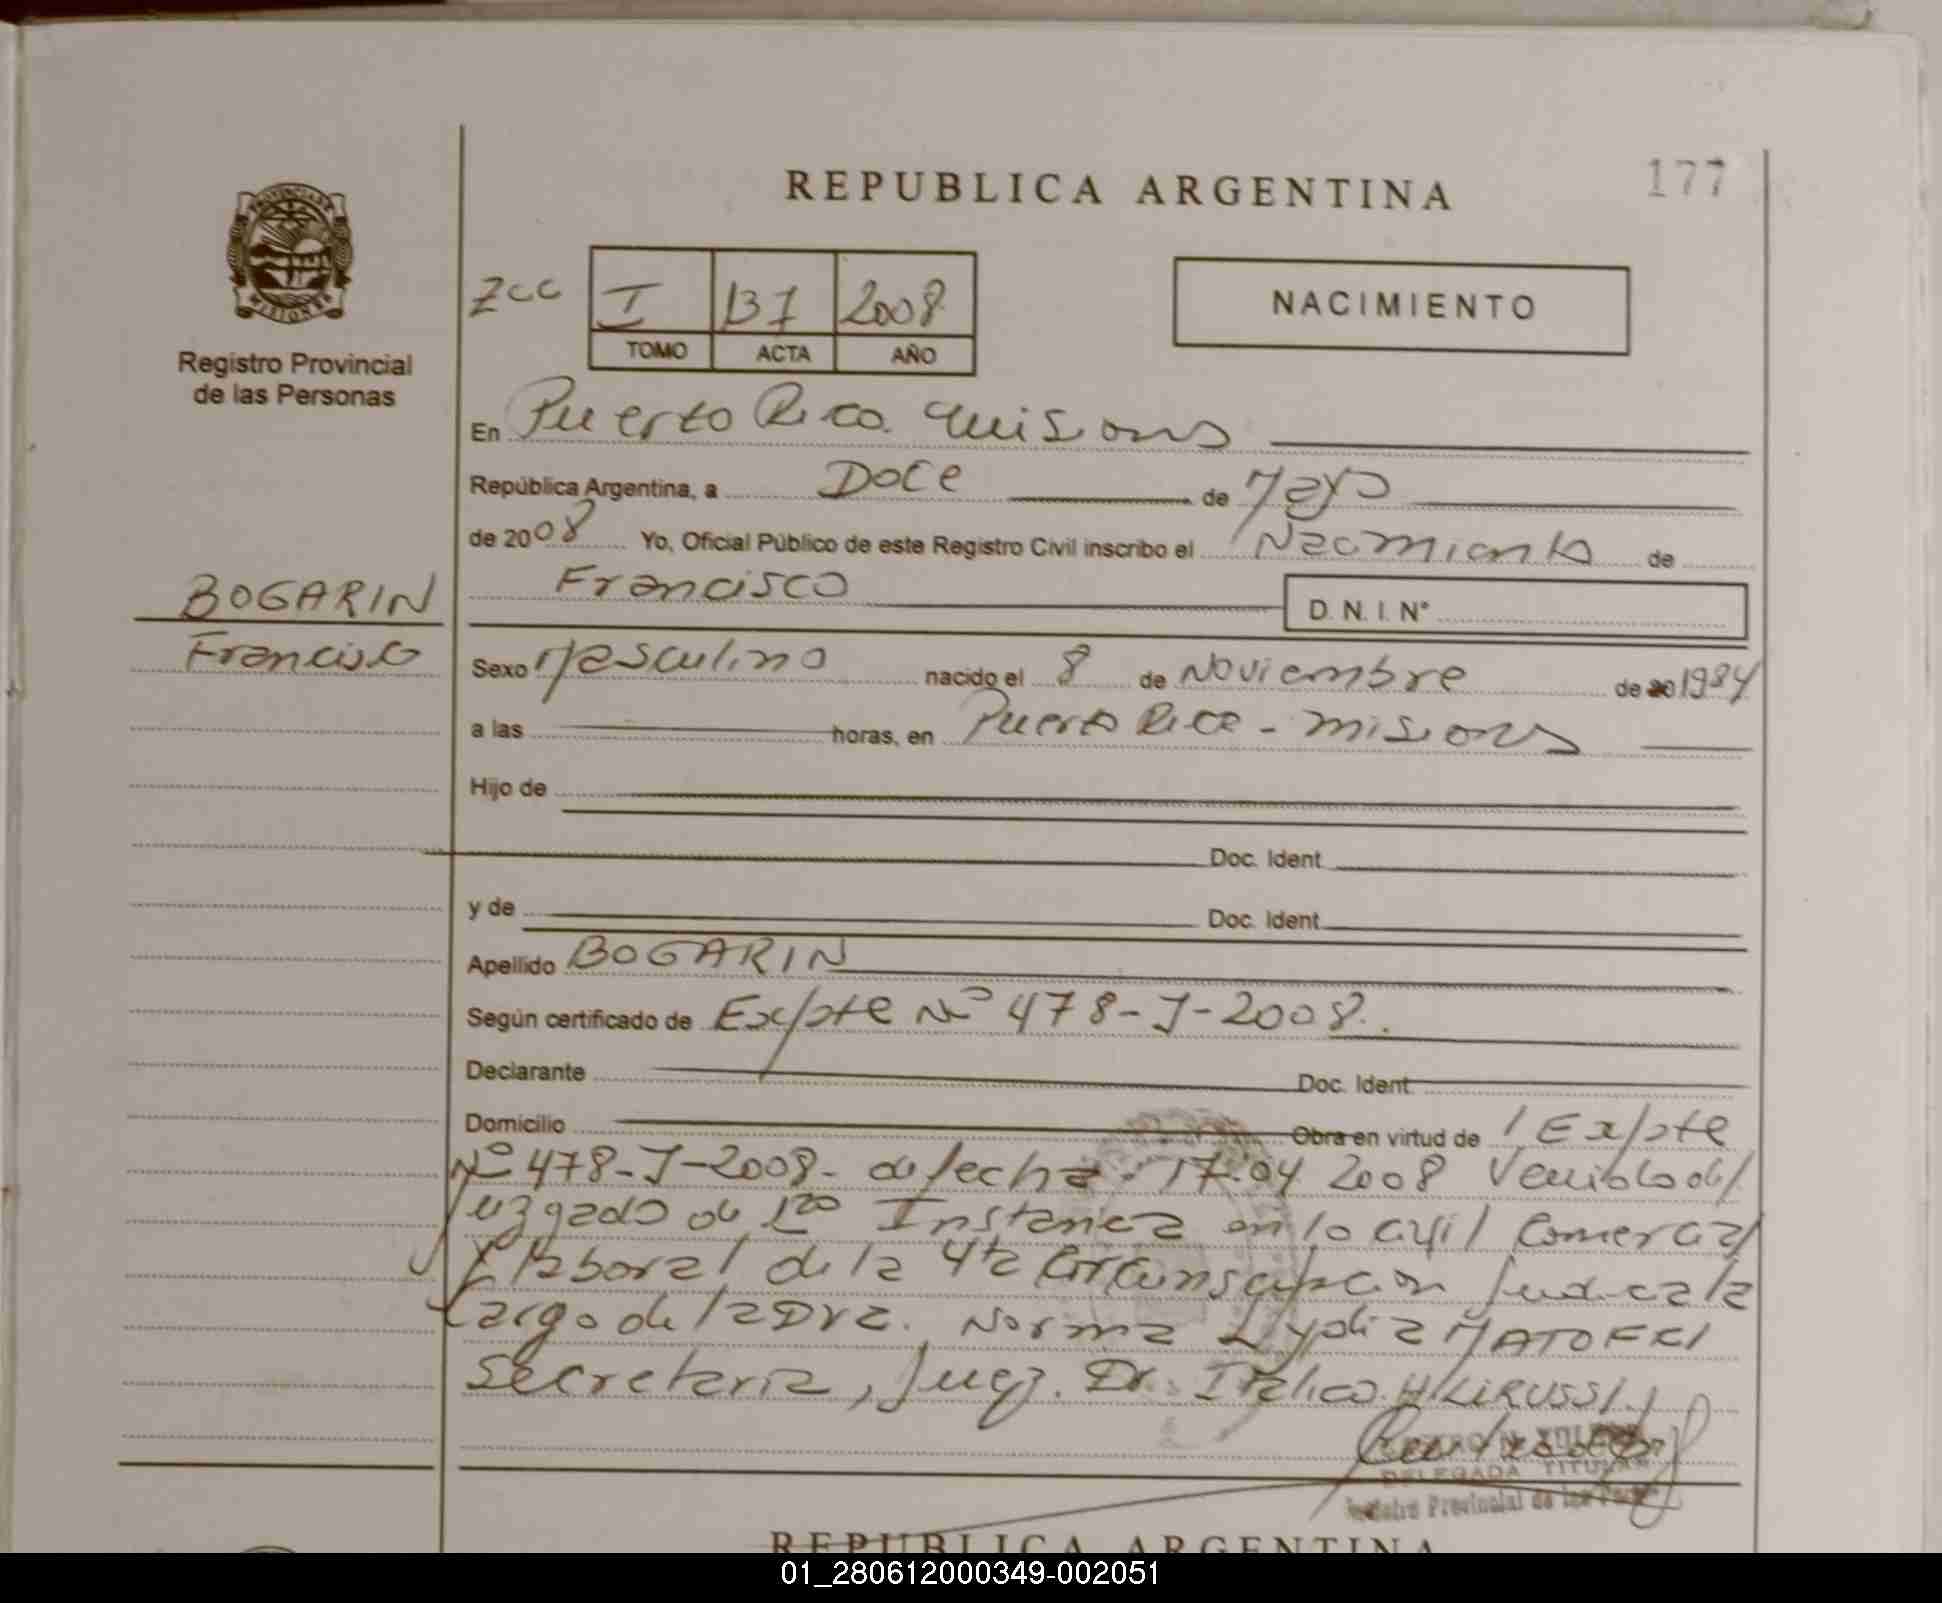 REPUBLICA ARGENTINA
177
PROVINCIA DE
MISIONES
Registro Provincial
de las Personas
Zcc
I 137 2008
TOMO ACTA AÑO
NACIMIENTO
En Puerto Rico. Misiones
República Argentina, a Doce de Mayo
de 2008 Yo, Oficial Público de este Registro Civil inscribo el Nacimiento de
Francisco D. N. I. N°
BOGARIN
Francisco
Sexo Masculino nacido el 8 de Noviembre de 20 1984
a las horas, en Puerto Rico - Misiones
Hijo de
Doc. Ident.
y de Doc. Ident.
Apellido BOGARIN
Según certificado de Expte Nº 478-J-2008.
Declarante Doc. Ident.
Domicilio Obra en virtud de / Expte
Nº 478-J-2008- de fecha 17.04 2008 Venido del
Juzgado de 1ra Instancia en lo Civil Comercial
y laboral de la 4ta Circunscripcion Judicial a
Cargo de la Dra. Norma Lydia
Secretaria, Juez. Dr. Italico
DELEGADA TITULAR
Registro Provincial de las Pers
REPUBLICA ARGENTINA
01_280612000349-002051